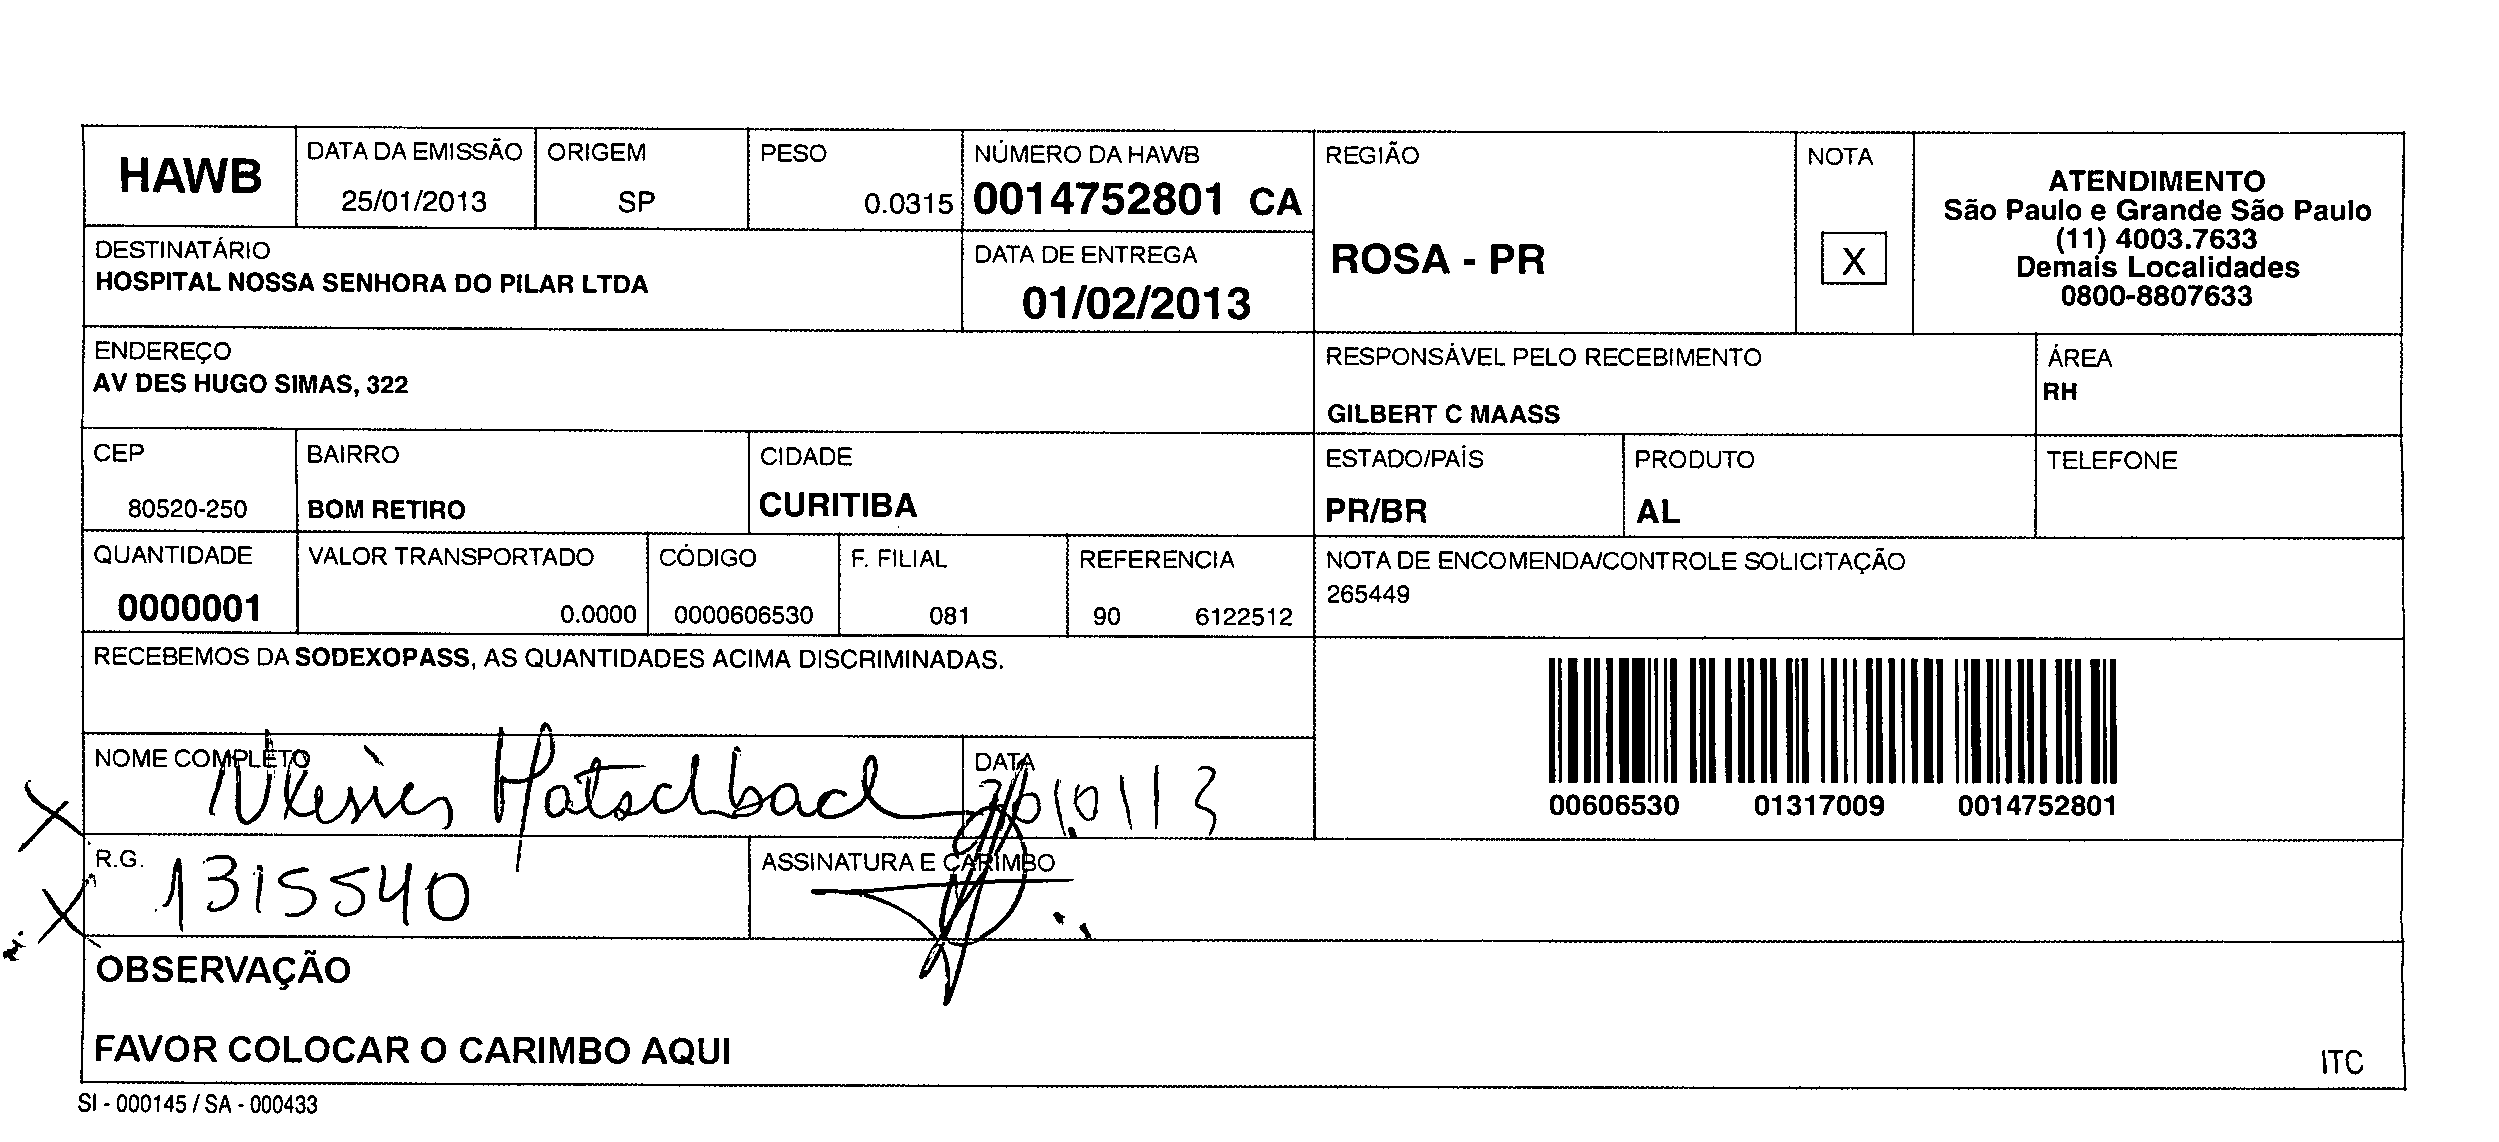 HAWB
DATA DA EMISSÃO
25/01/2013
ORIGEM
SP
PESO
0.0315
NÚMERO DA HAWB
0014752801 CA
REGIÃO
ROSA - PR
NOTA
X
ATENDIMENTO
São Paulo e Grande São Paulo
(11) 4003.7633
Demais Localidades
0800-8807633
DESTINATÁRIO
HOSPITAL NOSSA SENHORA DO PILAR LTDA
DATA DE ENTREGA
01/02/2013
ENDEREÇO
AV DES HUGO SIMAS, 322
RESPONSÁVEL PELO RECEBIMENTO
GILBERT C MAASS
ÁREA
RH
CEP
80520-250
BAIRRO
BOM RETIRO
CIDADE
CURITIBA
ESTADO/PAÍS
PR/BR
PRODUTO
AL
TELEFONE
QUANTIDADE
0000001
VALOR TRANSPORTADO
0.0000
CÓDIGO
0000606530
F. FILIAL
081
REFERENCIA
90 6122512
NOTA DE ENCOMENDA/CONTROLE SOLICITAÇÃO
265449
RECEBEMOS DA SODEXOPASS, AS QUANTIDADES ACIMA DISCRIMINADAS.
00606530 01317009 0014752801
NOME COMPLETO
Hatschbach
DATA
R.G.
1315540
ASSINATURA E CARIMBO
OBSERVAÇÃO
FAVOR COLOCAR O CARIMBO AQUI
ITC
SI - 000145 / SA - 000433